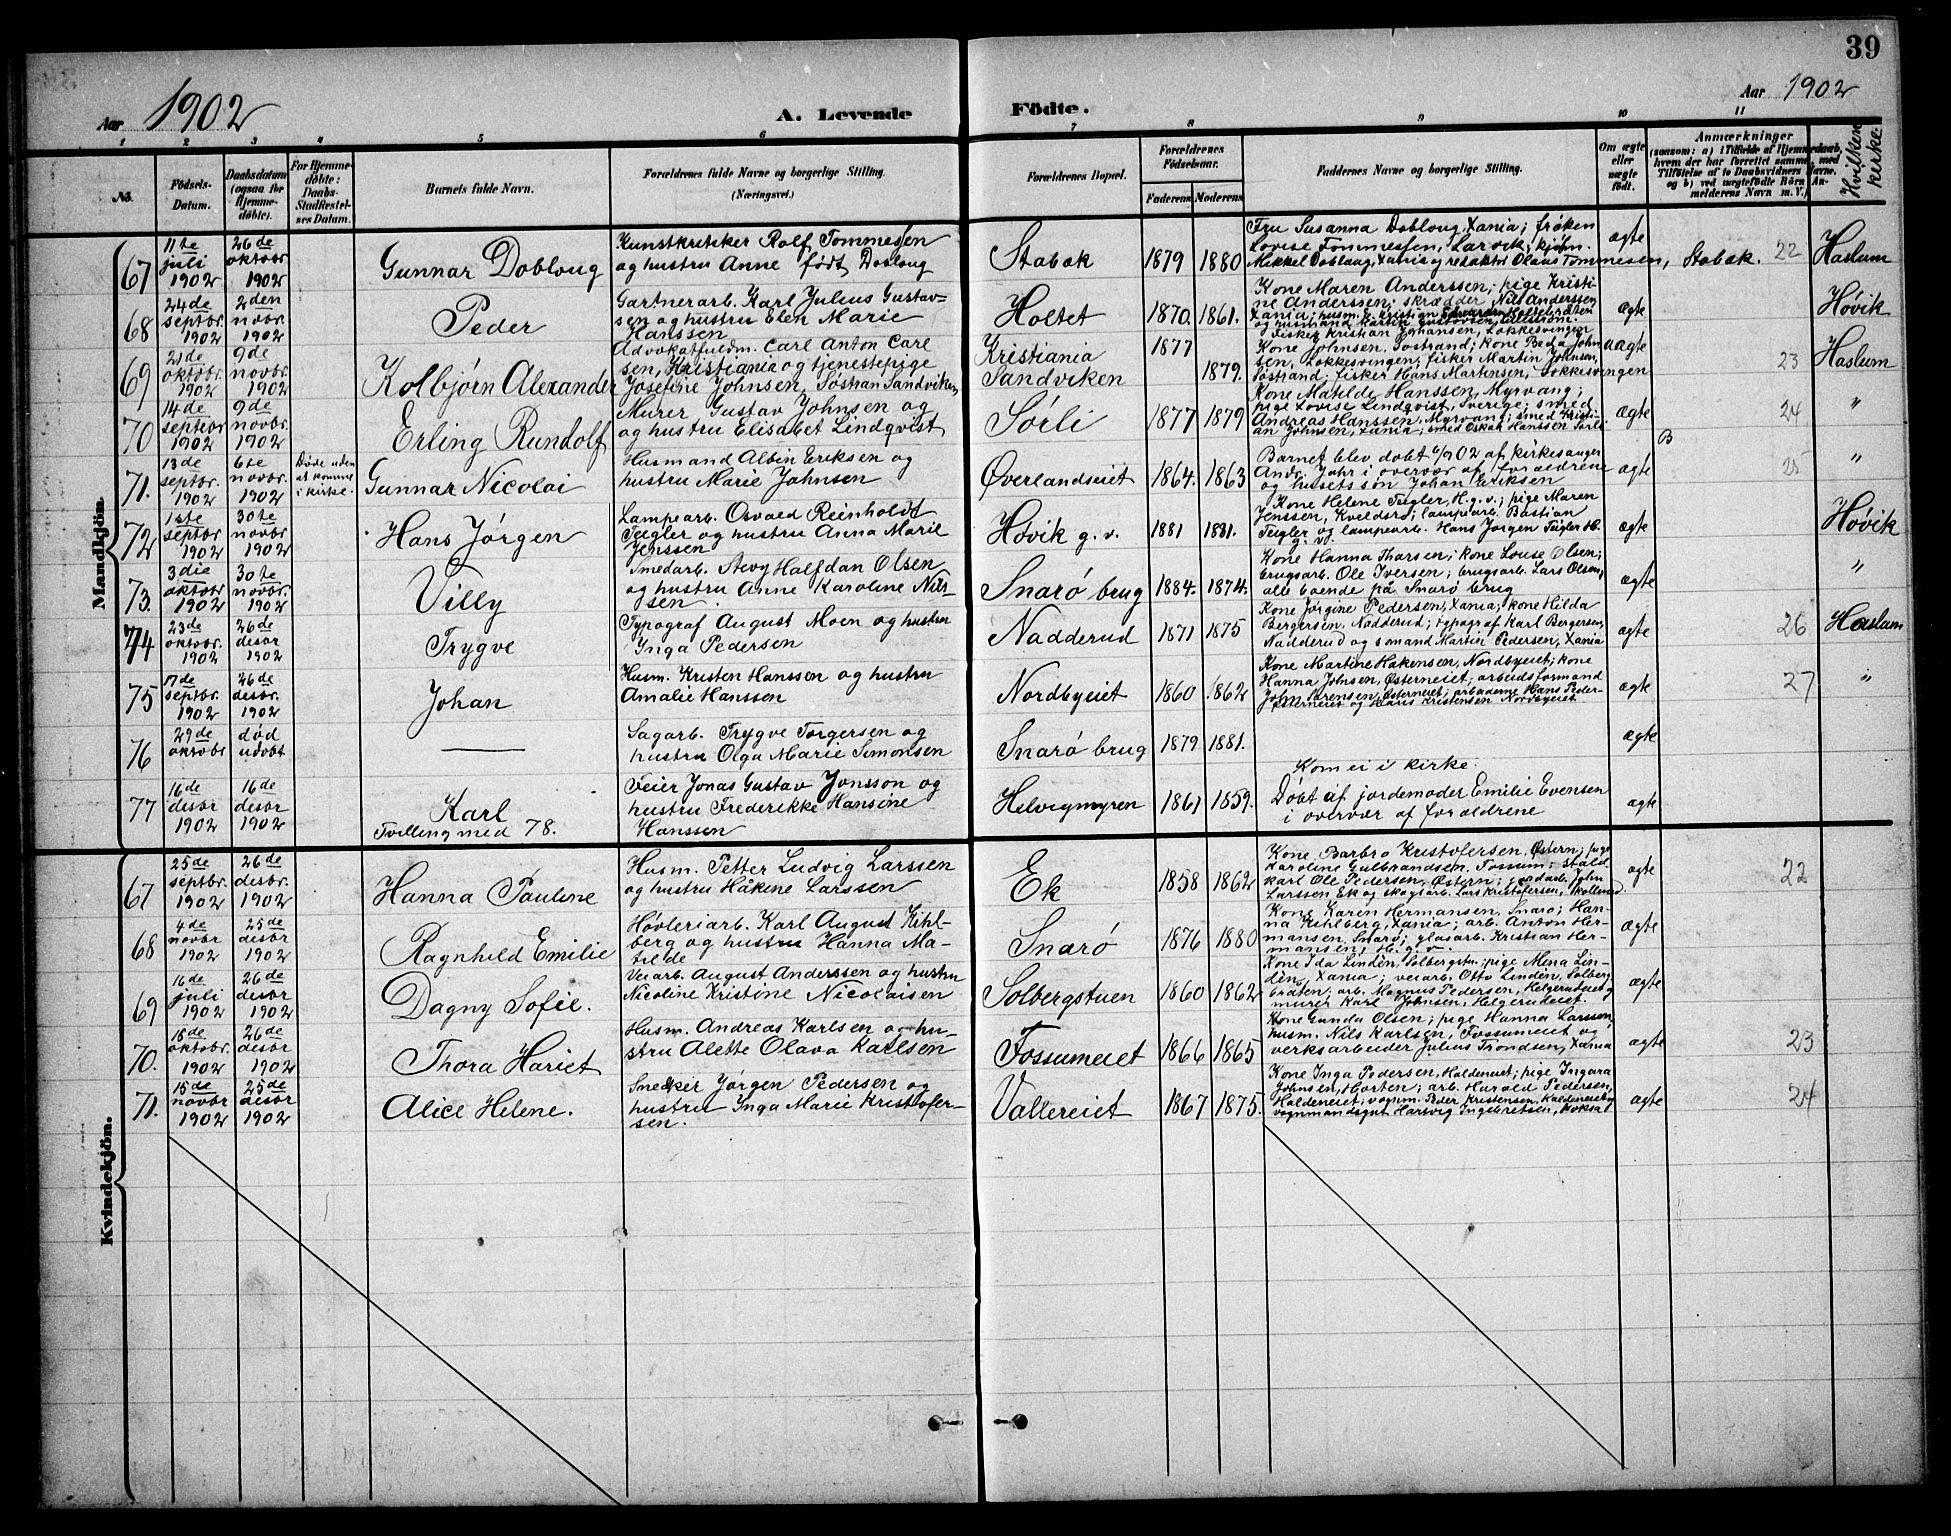 39
Aar 1902 A. Levende Födte. Aar 1902
1 2 3 4 5 6 7 8 9 10 11
No. Födsels-Datum. Daabsdatum (ogsaa for Hjemmedöbte). For Hjemmedöbte: Daabs-Stadfæstelses Datum. Barnets fulde Navn. Forældrenes fulde Navne og borgerlige Stilling. (Næringsvei.) Forældrenes Bopæl. Forældrenes Födselsaar. Faderens Moderens Faddernes Navne og borgerlige Stilling. Om ægte eller uægte födt. Anmærkninger (saasom: a) i Tilfælde af Hjemmedaab, hvem der har forrettet samme, med Tilföielse af to Daabsvidners Navne, og b) ved uægtefödte Börn Anmelderens Navn m. V.) Hvilken kirke.
Mandkjön.
67 11te juli 1902 26de oktobr 1902 Gunnar Dobloug
Kunstkritiker Rolf Tommessen
og hustru Anne født Dobloug
Stabæk 1879 1880
Fru Susanna Dobloug, Xania; frøken
Lovise Tommessen, Larvik; kjøbm.
Mikkel Dobloug, Xania og redaktør Olaus Tommesen,
ægte Stabæk. 22 Haslum
68 24de septbr. 1902 2den novbr. 1902 Peder
Gartnerarb. Karl Julius Gustav-
sen og hustru Elen Marie
Hanssen
Holtet 1870. 1861.
Kone Maren Anderssen; pige Kristi-
ne Anderssen; skrædder Nils Anderssen
Xania; husm.
og husmand
ægte Høvik
69 21de oktobr 1902 9de novbr. 1902 Kolbjørn Alexander
Advokatfuldm. Carl Anton Carl
sen, Kristiania og tjenestepige
Josefine Johnsen, Sostran Sandviken,
Kristiania 1877
Sandviken 1879.
Fisker Kristian Johansen, Løkkesvingen
Kone Johnsen, Sostrand; kone Beda John
sen, Løkkesvingen, fisker Martin Johnsen,
Sostrand; fisker Hans Martensen, Løkkesvingen
uægte 23 Haslum
70 14de septbr 1902 9de novbr. 1902 Erling Rundolf
Murer Gustav Johnsen og
og hustru Elisabet Lindqvist
Sørli 1877 1879
Kone Matilde Hanssen, Myrvang;
pige Lovise Lindqvist, Sverige; smed
Andreas Hanssen, Myrvang; smed Kristi-
an Johnsen, Xania; smed Oskar Hanssen Sørli.
ægte B 24 "
71. 13de septbr. 1902 6te novbr. 1902 Døde uden at komme i kirke. Gunnar Nicolai
Husmand Albin Eriksen og
hustru Marie Johnsen
Øverlandseiet 1864. 1863
Barnet blev døbt 6/11 02 af kirkesanger
Andr. Jahr i overvær af forældrene
og husets søn Johan Eriksen
ægte 25 "
72 1ste septbr 1902 30te novbr. 1902 Hans Jørgen
Lampearb. Osvald Reinholdt
Teigler og hustru Anna Marie
Jenssen
Høvik g. v. 1881 1881.
Kone Helene Teigler, H. g. v.; pige Maren
Jenssen, Kveldsro; lampearb. Bastian
Teigler og lampearb. Hans Jørgen Teigler H.
g. v.
ægte Høvik
73. 3die oktobr 1902 30te novbr. 1902 Villy
Smedarb. Halfdan Olsen
og hustru Anne Karoline Nils-
sen.
Snarø brug 1884. 1874.
Kone Hanna Tharsen; kone Louse Olsen;
brugsarb. Ole Iversen; brugsarb. Lars Olsen,
alle boende på Snarø brug
ægte "
74 23de oktobr. 1902 26de desbr 1902 Trygve
Typograf August Moen og hustru
Inga Pedersen
Nadderud 1871 1875
Kone Jørgine Pedersen, Xania; kone Hilda
Bergersen, Nadderud; typograf Karl Bergersen,
Nadderud og sømand Martin Pedersen, Xania
ægte 26 Haslum
75 17de septbr. 1902 26de desbr. 1902 Johan
Husm. Kristen Hanssen og hustru
Amalie Hanssen
Nordbyeiet 1860 1862
Kone Martine Håkensen, Nordbyeiet; kone
Hanna Johnsen, Østerneiet; arbeidsformand
John Sørensen, Østerneiet; arbeiderne Hans Peder-
Østerneiet og Hans Kristensen Nordbyeiet
ægte 27 "
76 29de oktobr død udøbt ——
Sagarb. Trygve Torgersen og
hustru Olga Marie Simonsen
Snarø brug 1879 1881. ægte
77 16de desbr 1902 16de desbr 1902 Karl
Tvilling med 78.
Feier Jonas Gustav Jonsson og
hustru Frederikke Hansine
Hanssen
Helvigmyren 1861 1859.
Kom ei i kirke.
Døbt af jordemoder Emilie Evensen
i overvær af forældrene
ægte
Kvindekjön.
67 25de septbr. 1902 26de desbr. 1902 Hanna Pauline
Husm. Petter Ludvig Larssen
og hustru Håkine Larssen
Ek 1858 1862
Kone Barbro Kristofersen, Østern; pige
Karoline Gulbrandsen, Fossum; stald
karl Ole Pedersen, Østern; jordarb. John
Larssen Ek og skogsarb. Lars Kristofersen, Skollerud.
ægte 22
68 4de novbr 1902 25de desbr 1902 Ragnhild Emilie
Høvleriarb. Karl August Kihl-
berg og hustru Hanna Ma-
tilde
Snarø 1876 1880
Kone Karen Hermansen, Snarø; Han-
na Kihlberg, Xania; arb. Anton Her-
mansen, Snarø; glasarb. Kristian Her-
mansen, H. g. v.
ægte
69 16de juli 1902 26de desbr 1902 Dagny Sofie.
Veiarb. August Anderssen og hustru
Nicoline Kristine Nicolaisen
Solbergstuen 1860 1862
Kone Ida Lindén, Solbergstu.; pige Mina Lin-
dén, Xania; veiarb. Otto Lindén, Solberg
bråten, arb. Magnus Pedersen, Helgerudeiet og
murer Karl Johnsen, Helgerudeiet.
ægte
70. 18de oktobr. 1902 26de desbr 1902 Thora Hariet
Husm. Andreas Karlsen og hu-
stru Alette Olava Karlsen
Fossumeiet 1866 1865
Kone Gunda Olsen; pige Hanna Larssen,
husm. Nils Karlsen, Fossumeiet og
verksarbeider Julius Trondsen, Xania
ægte 23
71. 15de novbr 1902 25de desbr 1902 Alice Helene.
Snedker Jørgen Pedersen og
hustru Inga Marie Kristofer-
sen.
Vallereiet 1867 1875.
Kone Inga Pedersen, Haldeneiet; pige Ingara
Johnsen, Horten; arb. Harald Pedersen,
Haldeneiet; vognm. Peder Kristensen, Haldeneiet og
vognmandsgut Hartvig Ingebretsen, Koksa
ægte 24